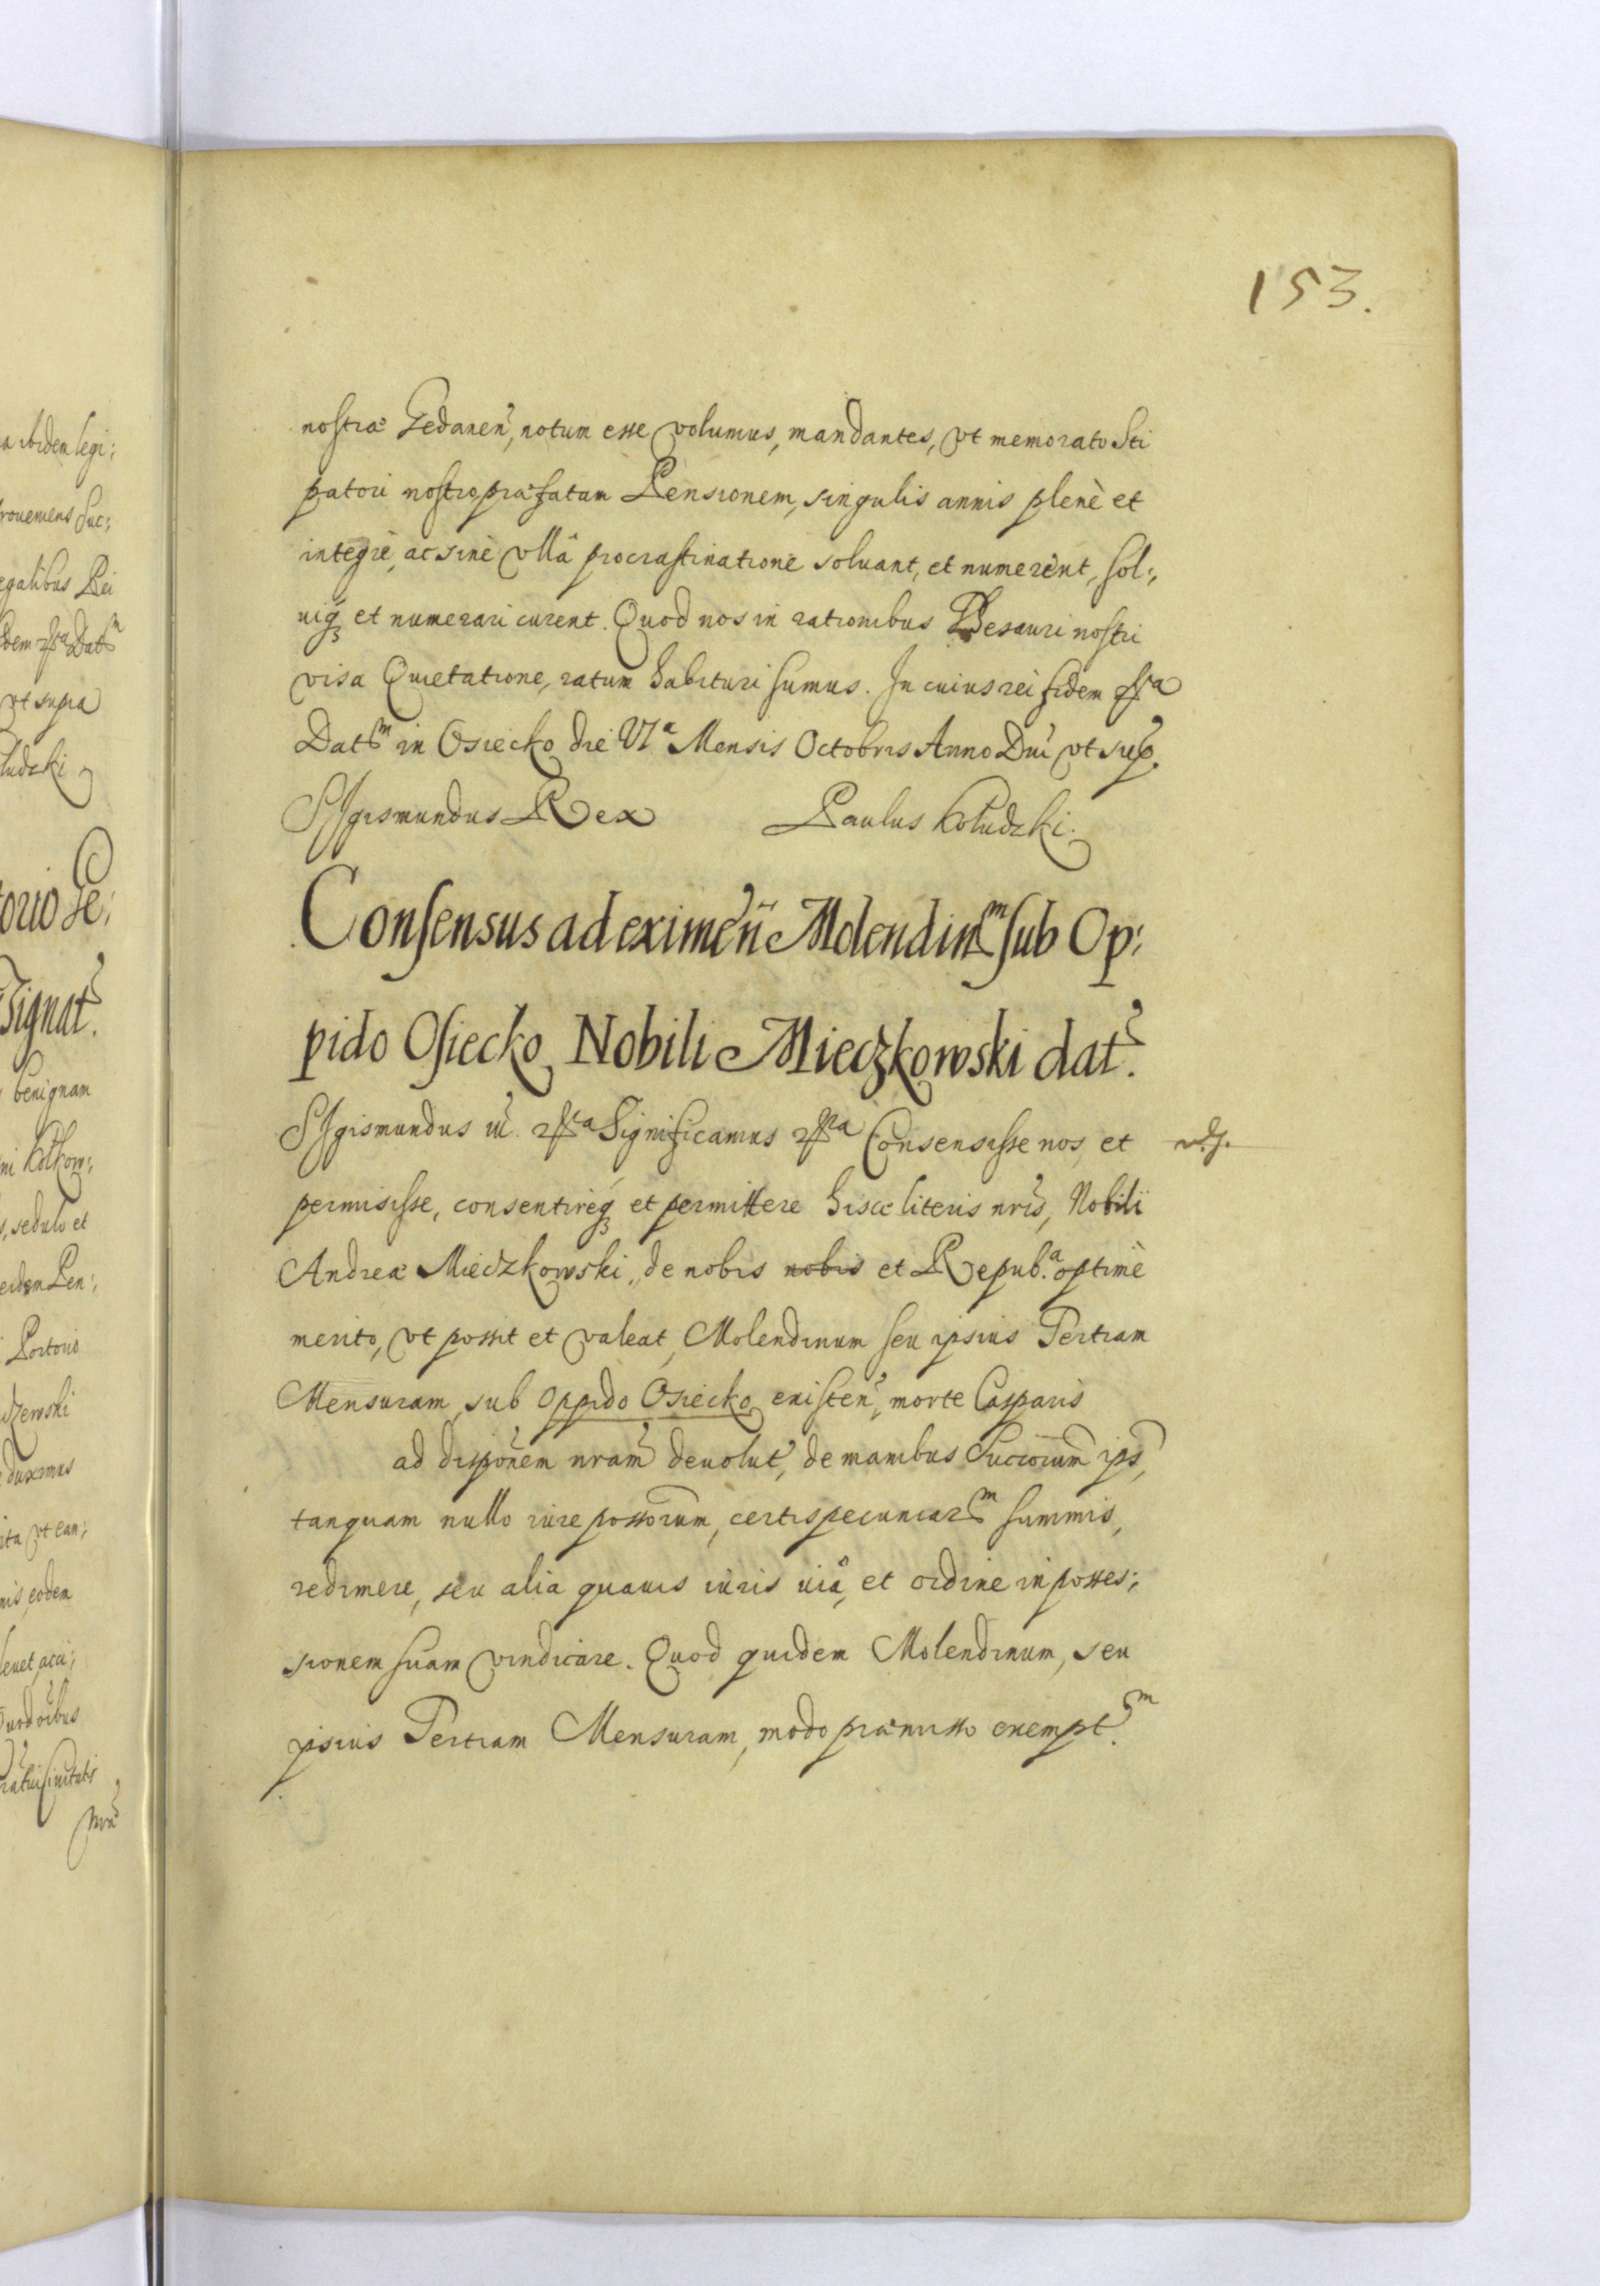 153.
nostræ Gedanen, notum esse volumus, mandantes, vt memorato Sti
patori nostro præfatam Pensionem, singulis annis plenè et
integrè, ac sinè vllâ procrastinatione soluant, et numerent, sol:,
uiq3 et numerari curent. Quod nos in rationibus Thesauri nostri
visa Quietatione, ratum habituri sumus. In cuius rei fidem
Datm in Osiecko die VIa Mensis Octobris Anno Dni vt sup.
Sigismundus Rex Paulus Kołudzki.
Consensus ad eximen Molendinm sub Op:
pido Osiecko Nobili Mieczkowski dat.
Sigismundus Significamus Consensisse nos, et
permisisse, consentireq3 et permittere hisce literis nris, Nobili
Andreæ Mieczkowski, de nobis nobis et Repub.a optimè
merito, vt possit et valeat, Molendinum seu ipsius Tertiam
Mensuram, sub oppido Osiecko existen, morte Casparis
ad disponem nram deuolut, de manibus Succorum ips,
tanquam nullo iure possorum, certis pecuniarm summis,
redimere, seu alia quauis iuris uiâ, et ordine in posses:,
sionem suam vindicare. Quod quidem Molendinum, seu
ipsius Tertiam Mensuram, modo præmisso exemptm.
a ibidem legi:
egalibus Rei
vt supra
orio Ge:
Signat.
benignam
, sedulo et
Portorio
duximus
ita vt ean:,
nis, eodem